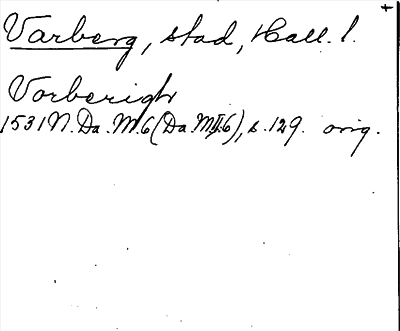 Varberg, stad, Hall. l.
Vorberigh
1531 N. Da. M. 6 (Da. M. II. 6), s. 129. orig.